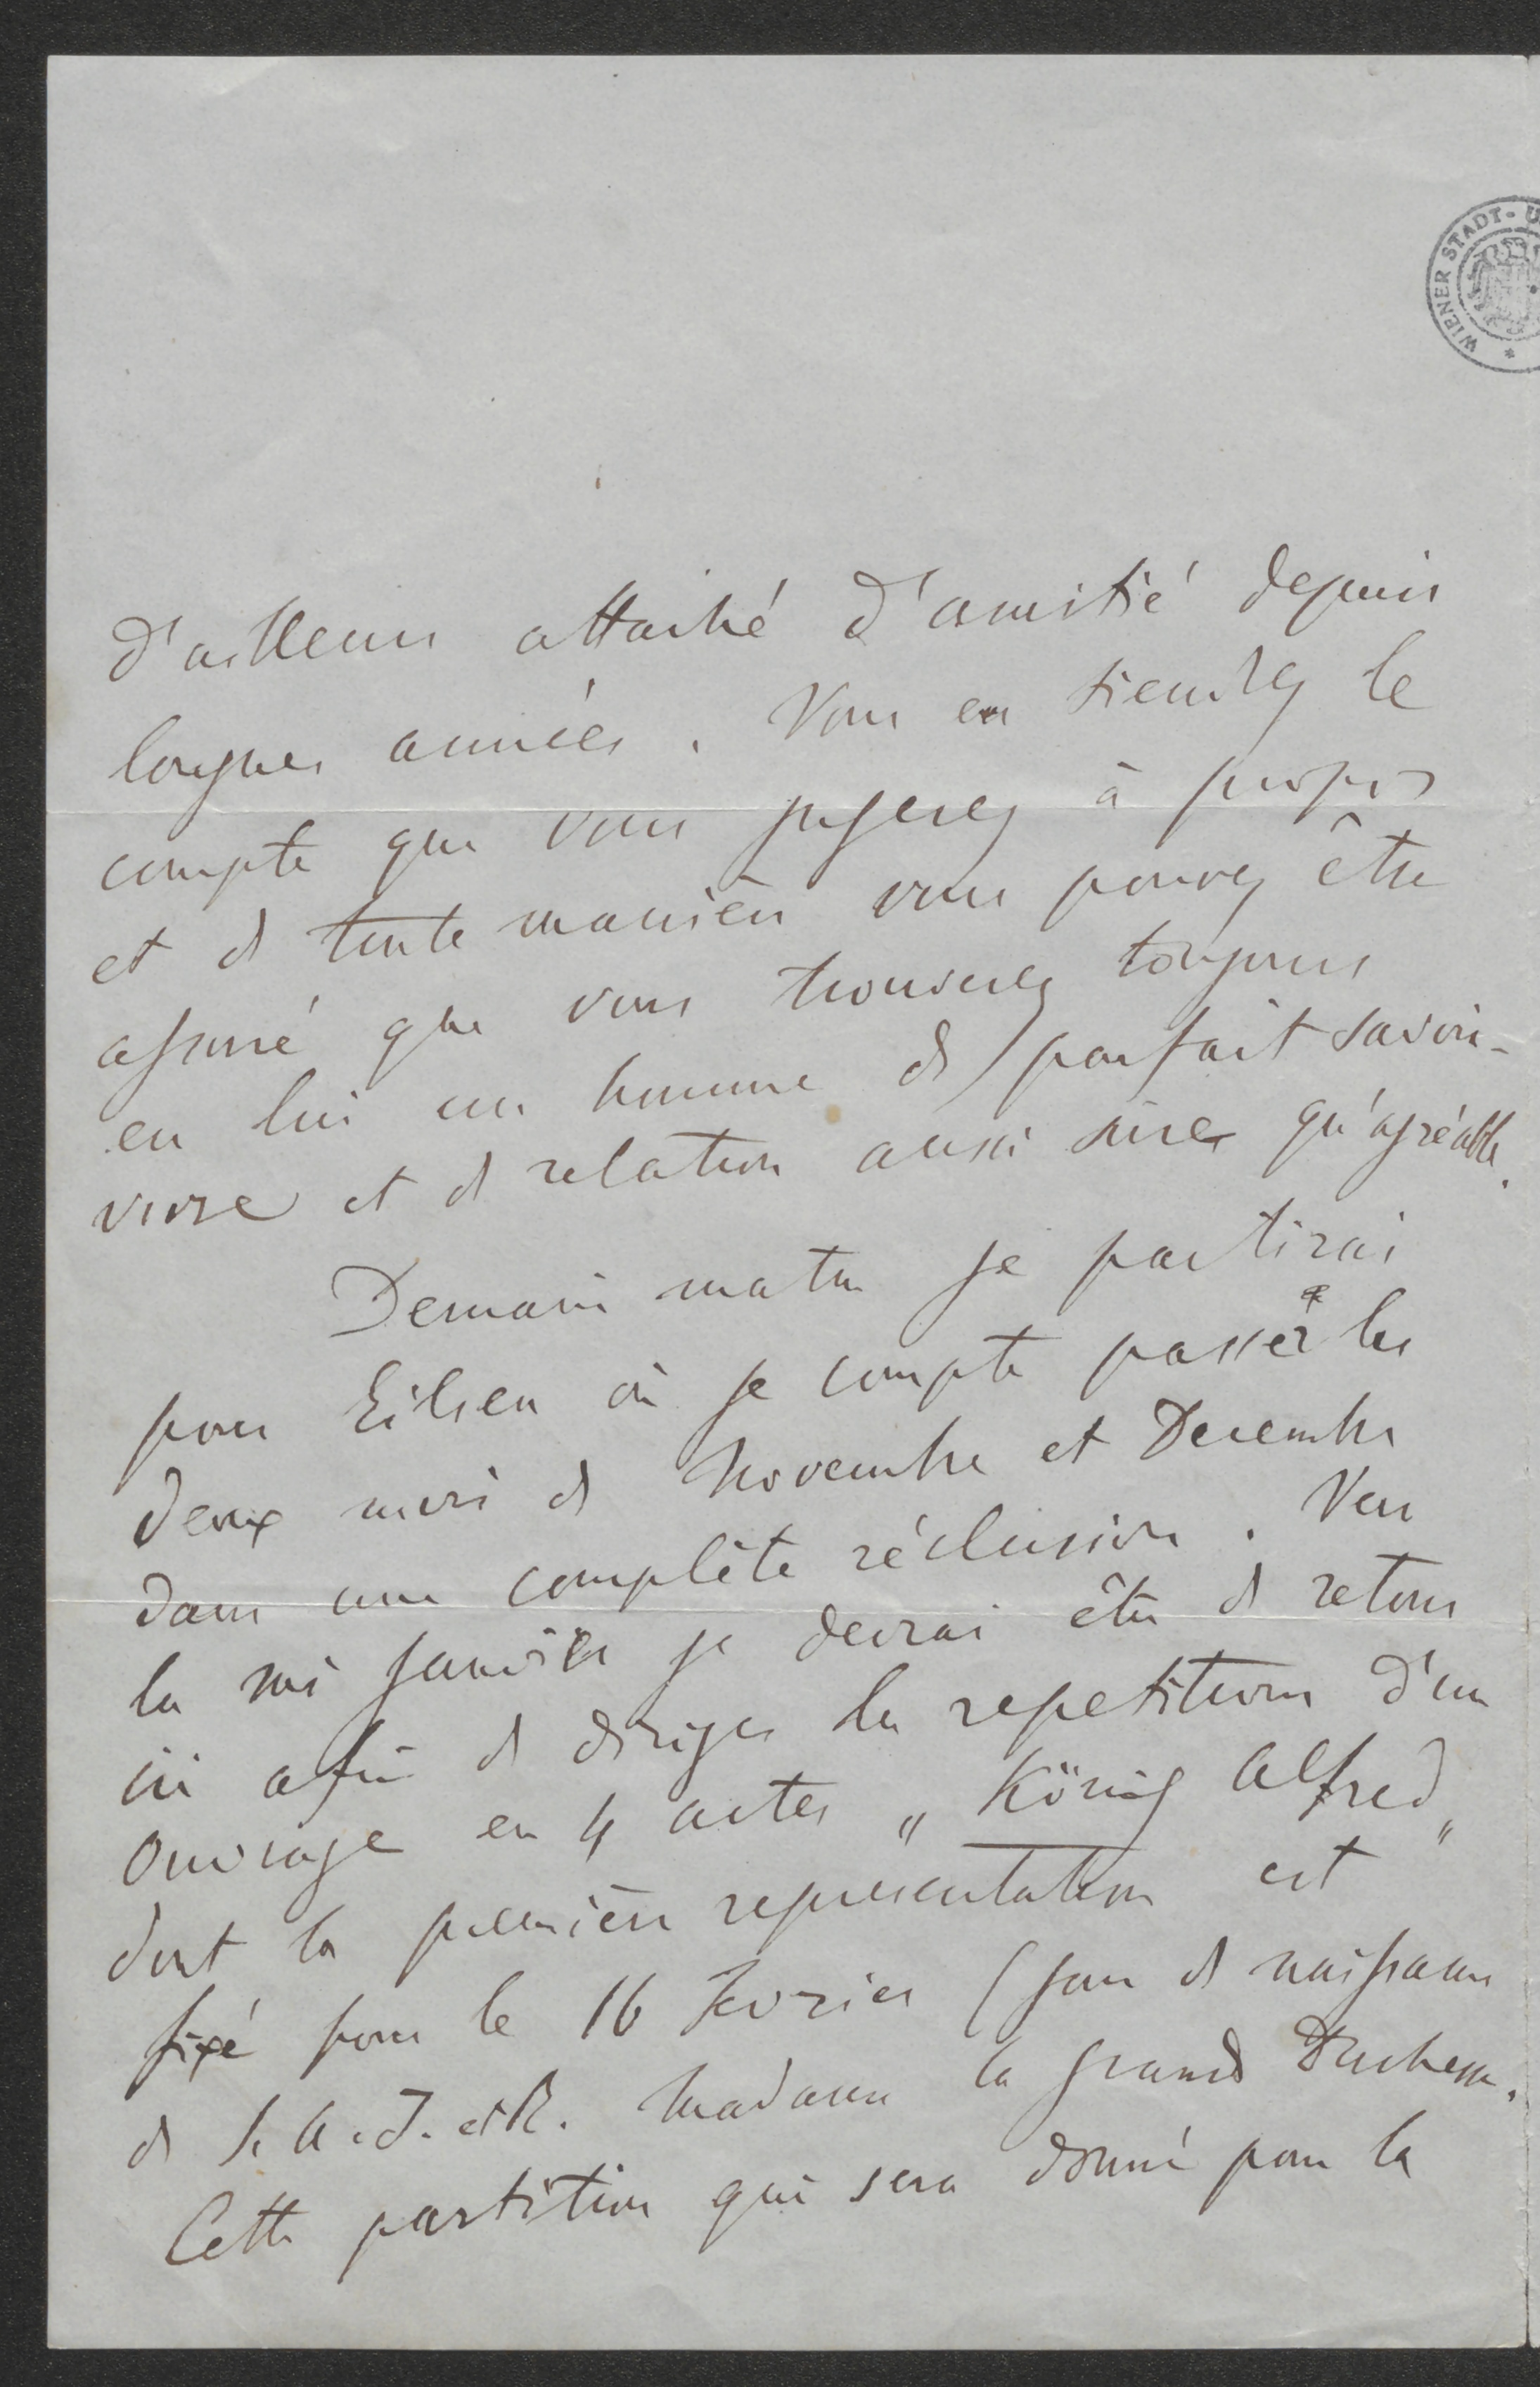 WIENER STADT- U
d'ailleurs attaché d'amitié depuis
longues années. Vous en tiendrez le
compte que vous jugerez à propos
et de toute manière vous pouvez être
assuré que vous trouverez toujours
en lui un homme de parfait savoir-
vivre et de relation aussi sûre qu'agréable.
Demain matin je partirai
pour Eilsen où je compte passer les
deux mois de Novembre et Decembre
dans une complète réclusion. Vers
la mi Janvier je devrai être de retour
ici afin de diriger les repetitions d'un
Ouvrage en 4 actes „König Alfred„
dont la première representation est
fixé pour le 16 Fevrier (jour de naissance
de S. A. I. et R. Madame la grande Duchesse.
Cette partition qui sera donné pour la